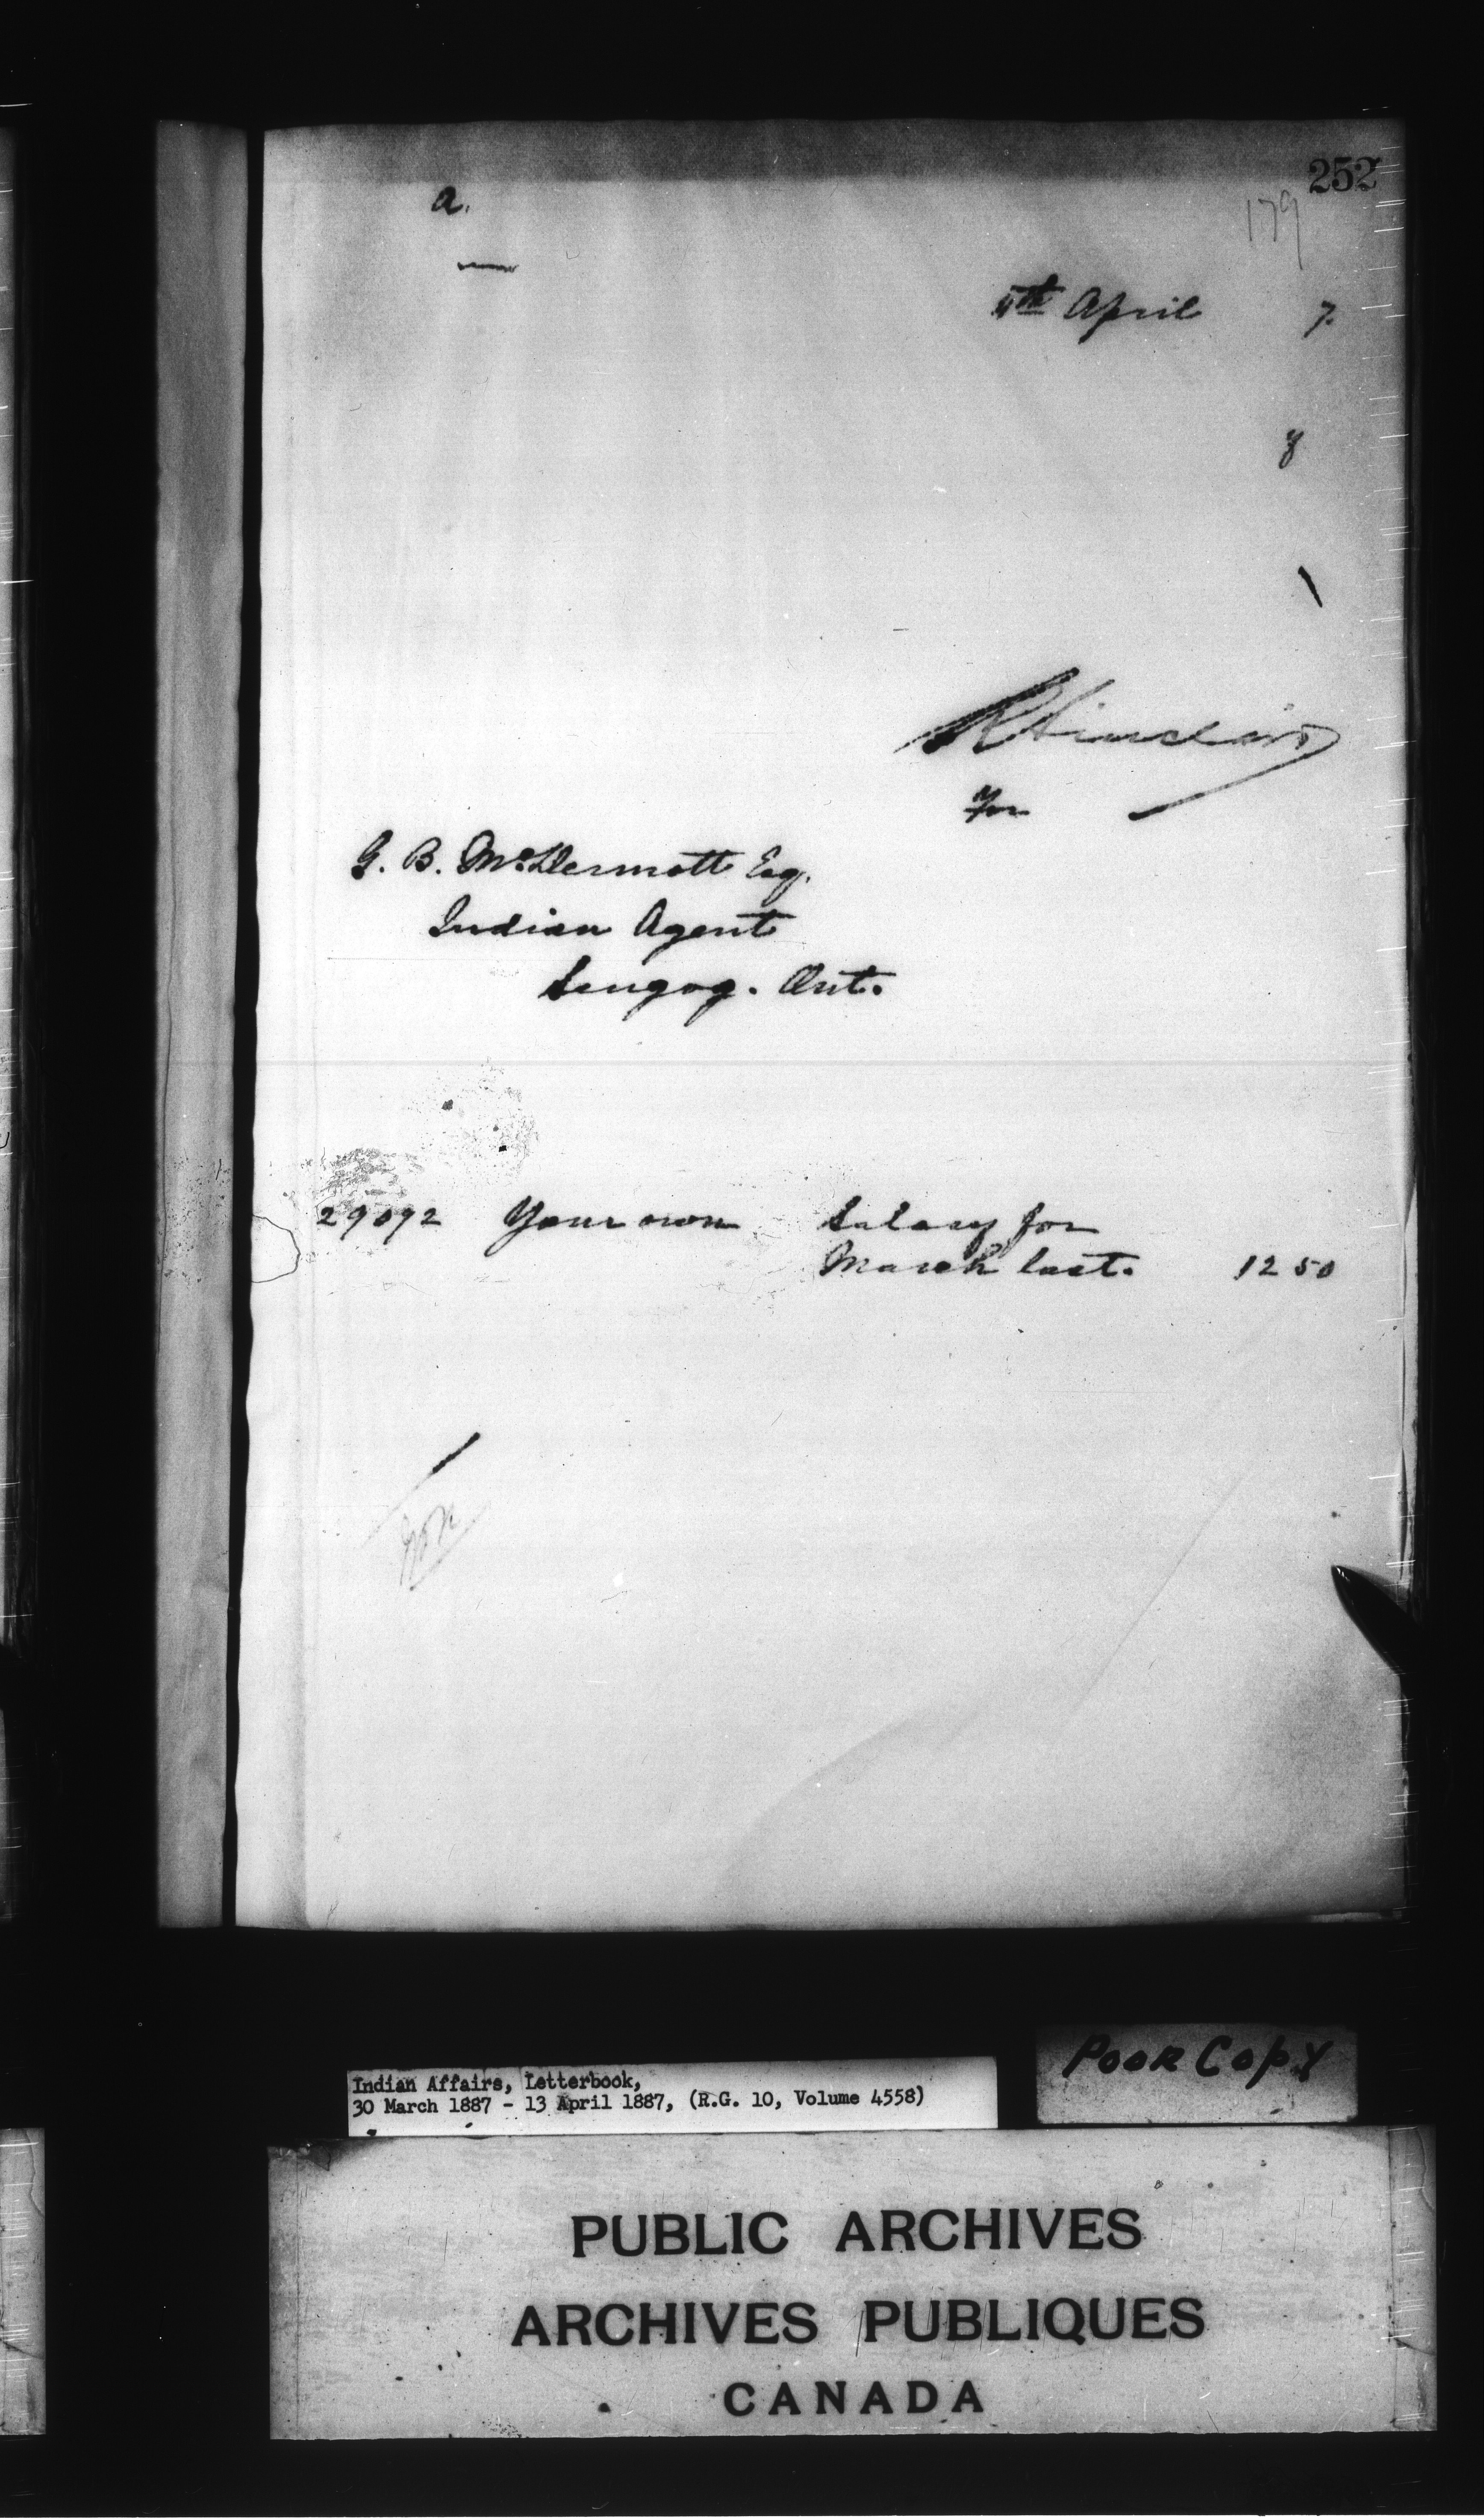 252
a.
179
5th April 7.
y
R Sinclair
For
G. B. McDermott Esq.
Indian Agent
Scugog. Ont.
29092 Your own Salary for
March last. 12 50
Poor Copy
Indian Affairs, Letterbook,
30 March 1887 - 13 April 1887, (R.G. 10, Volume 4558)
PUBLIC ARCHIVES
ARCHIVES PUBLIQUES
CANADA